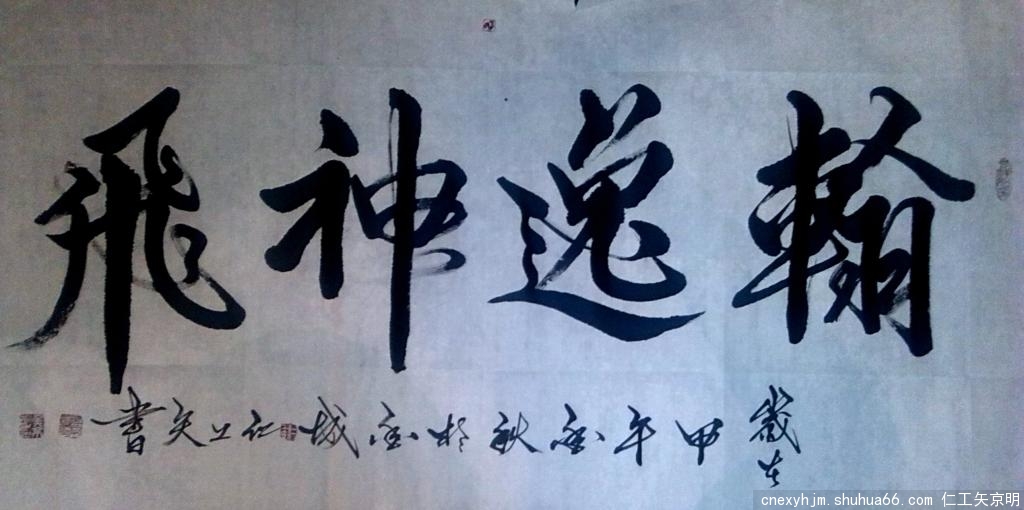 翰逸神飛
歲在甲午金秋於金城仁工矢書
cnexyhjm.shuhua66.com 仁工矢京明